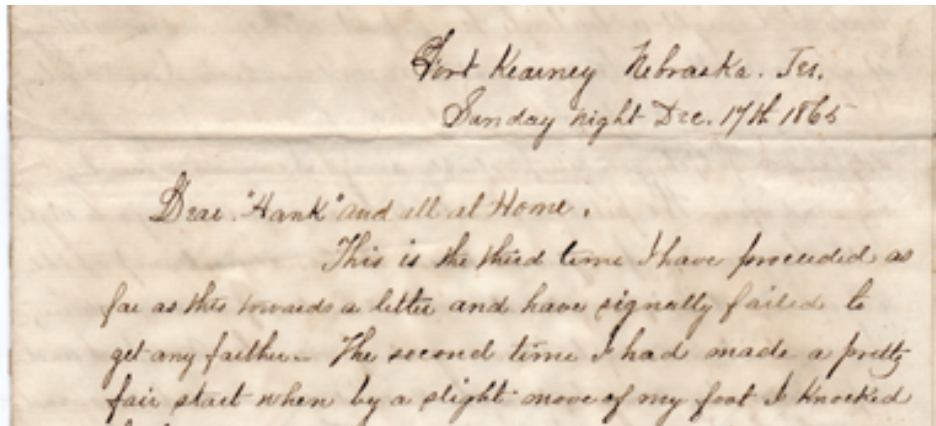 Fort Kearney Nebraska. Ter.
Sunday night Dec. 17th 1865
Dear "Hank" and all at Home.
This is the third time I have proceeded as
far as this towards a letter and have signally failed to
get any farther. The second time I had made a pretty
fair start when by a slight move of my foot I knocked